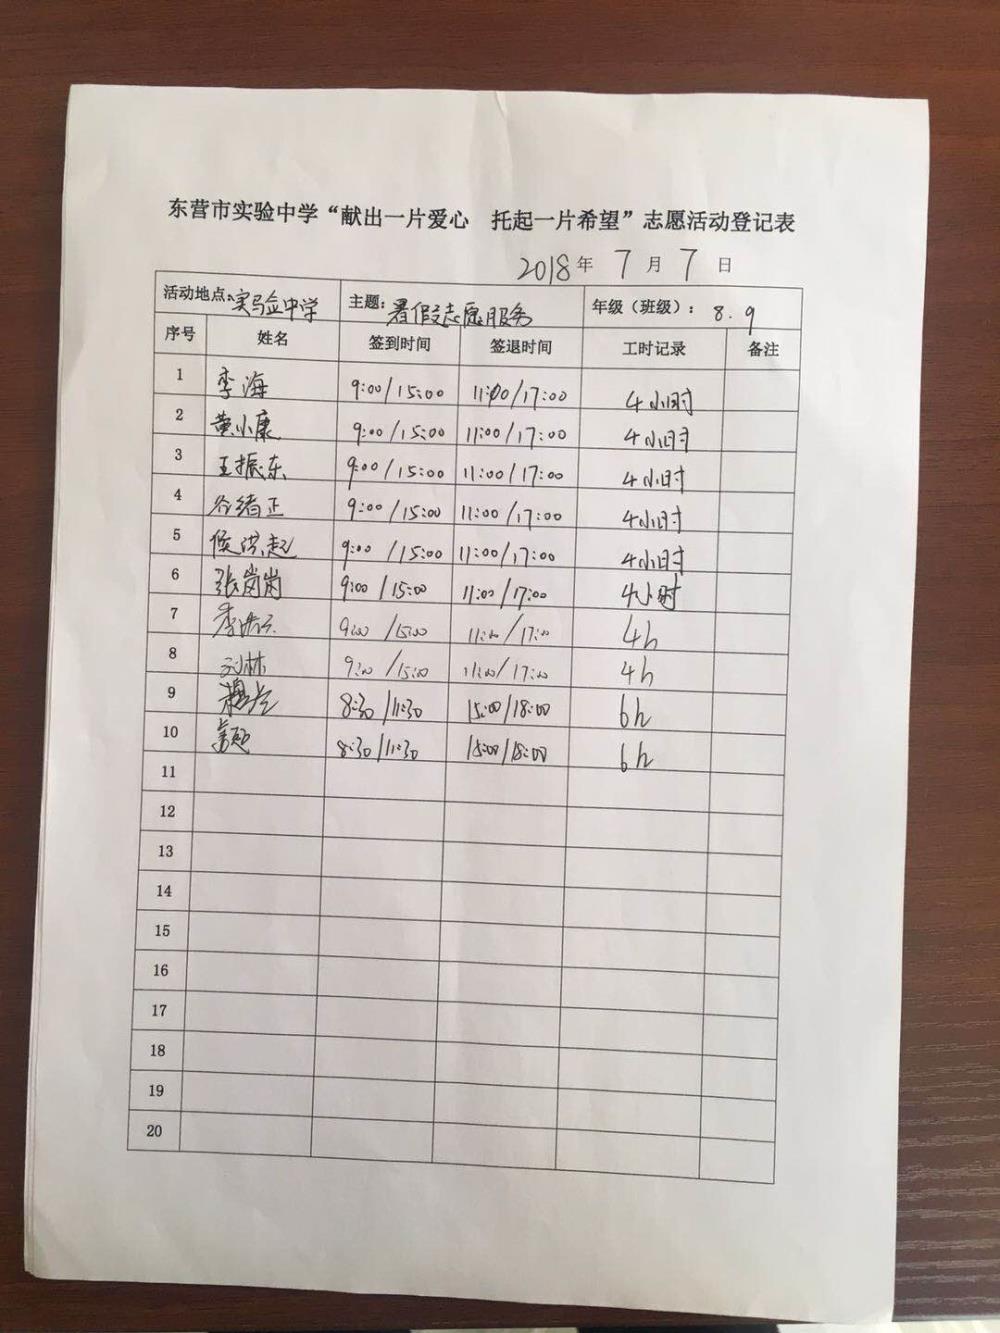 东营市实验中学“献出一片爱心 托起一片希望”志愿活动登记表
2018年 7 月 7 日
活动地点:实验中学 主题:暑假志愿服务 年级（班级）: 8.9
序号 姓名 签到时间 签退时间 工时记录 备注
1 李海 9:00/15:00 11:00/17:00 4小时
2 黄小康 9:00/15:00 11:00/17:00 4小时
3 王振东 9:00/15:00 11:00/17:00 4小时
4 谷绪正 9:00/15:00 11:00/17:00 4小时
5 侯洪起 9:00/15:00 11:00/17:00 4小时
6 张岗岗 9:00/15:00 11:00/17:00 4小时
7 9:00/15:00 11:00/17:00 4h
8 刘林 9:00/15:00 11:00/17:00 4h
9 8:30/11:30 15:00/18:00 6h
10 8:30/11:30 15:00/18:00 6h
11
12
13
14
15
16
17
18
19
20